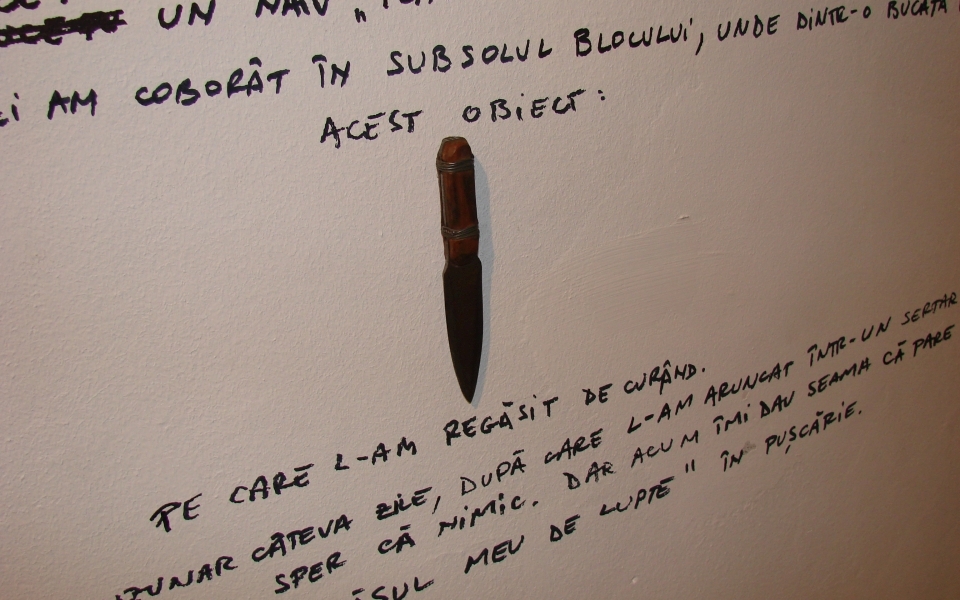 UN NAIV "
AM COBORÂT ÎN SUBSOLUL BLOCULUI, UNDE DINTR-O BUCATĂ
ACEST OBIECT:
PE CARE L-AM REGĂSIT DE CURÂND.
CÂTEVA ZILE, DUPĂ CARE L-AM ARUNCAT ÎNTR-UN SERTAR
SPER CĂ NIMIC. DAR ACUM ÎMI DAU SEAMA CĂ PARE
MEU DE LUPTE" ÎN PUȘCĂRIE.